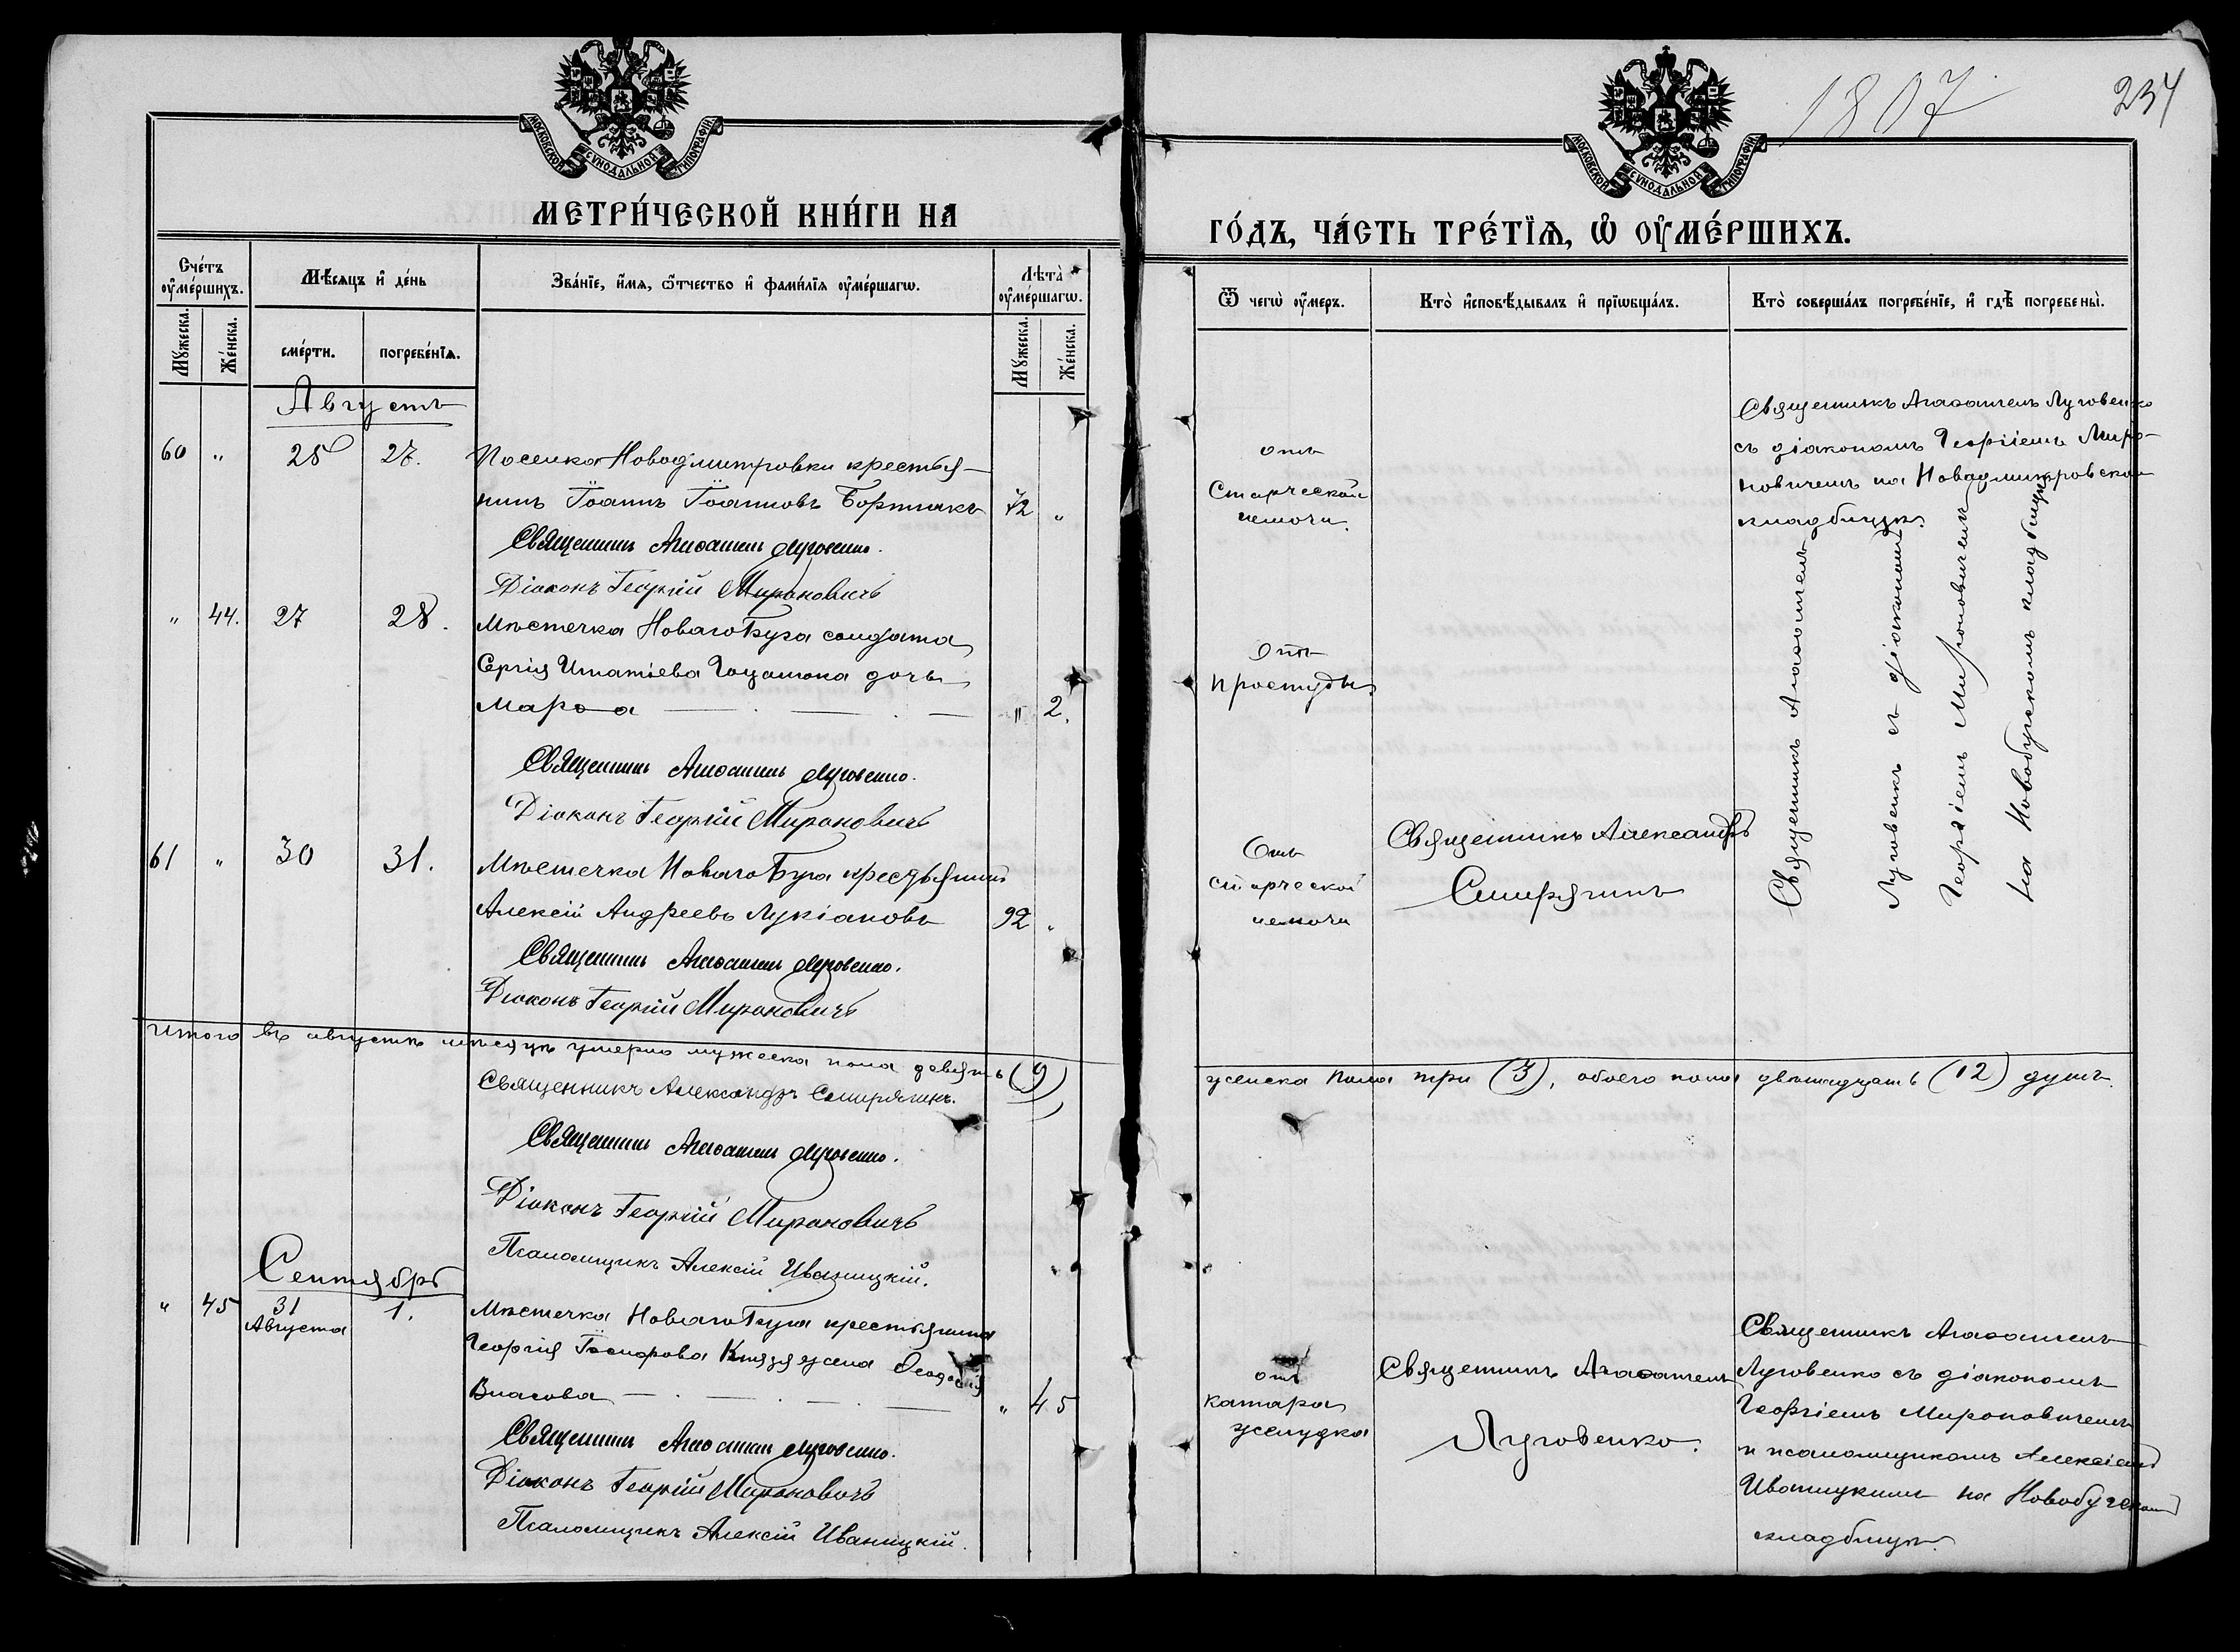 1807
234
МОСКОВСКОЙ СѴНОДАЛЬНОЙ ТИПОГРАФІИ
МОСКОВСКОЙ СѴНОДАЛЬНОЙ ТИПОГРАФІИ
МЕТРИ́ЧЕСКОЙ КНИ́ГИ НА
ГО́ДЪ, ЧА́СТЬ ТРЕ́ТЇѦ, Ѡ҆ ОУ҆МЕ́РШИХЪ.
Сче́тъ оу҆ме́ршихъ.
Мꙋ́жеска.
Же́нска.
Мѣ́сѧцъ и҆ де́нь
сме́рти.
погребе́нїѧ.
Зва́нїе, и҆́мѧ, ѻ҆́тчество и҆ фами́лїѧ оу҆ме́ршагѡ.
Лѣта̀ оу҆ме́ршагѡ.
Мꙋ́жеска.
Же́нска.
Ѿ чегѡ̀ оу҆́меръ.
Кто̀ и҆сповѣ́дывалъ и҆ прїѡбща́лъ.
Кто̀ соверша́лъ погребе́нїе, и҆ гдѣ̀ погребены̀.
Августъ
60 " 25 27. Поселка Новодмитровки крестья-
нинъ Іоаннъ Іоанновъ Бортнакъ 72 "
Священникъ Агаѳангелъ Луговенко.
Діаконъ Георгій Мироновичъ
отъ
Старческой
немочи.
Священникъ Агаѳангелъ Луговенко
съ діакономъ Георгіемъ Миро-
новичемъ на Новодмитровском
кладбищѣ.
" 44. 27 28. Мѣстечка Новаго Буга солдата
Сергія Игнатіева дочь
Марѳа " 2.
Священникъ Агаѳангелъ Луговенко.
Діаконъ Георгій Мироновичъ
Отъ
простуды
Священникъ Агаѳангелъ
Луговенко съ діакономъ
Георгіемъ Мироновичемъ
на Новобугскомъ кладбищѣ
61 " 30 31. Мѣстечка Новаго Буга крестьянинъ
Алексій Андреевъ Лукіановъ 92 "
Священникъ Агаѳангелъ Луговенко.
Діаконъ Георгій Мироновичъ
Отъ
старческой
немочи
Священникъ Александръ
Смирягинъ
Итого въ августѣ мѣсяцѣ умерло мужеска пола девять (9)
женска пола три (3), обоего пола двѣнадцать (12) душъ.
Священникъ Александръ Смирягинъ.
Священникъ Агаѳангелъ Луговенко.
Діаконъ Георгій Мироновичъ
Псаломщикъ Алексій Иваницкій.
Сентябрь
" 45 31 Августа 1. Мѣстечка Новаго Буга крестьянина
Георгія Князя жена Ѳеодосія
Власова " 45
Священникъ Агаѳангелъ Луговенко.
Діаконъ Георгій Мироновичъ
Псаломщикъ Алексій Иваницкій.
отъ
катара
желудка
Священникъ Агаѳангелъ
Луговенко.
Священникъ Агаѳангелъ
Луговенко съ діакономъ
Георгіемъ Мироновичемъ
и псаломщикомъ Алексіемъ
Иваницкимъ на Новобугском
кладбищѣ.